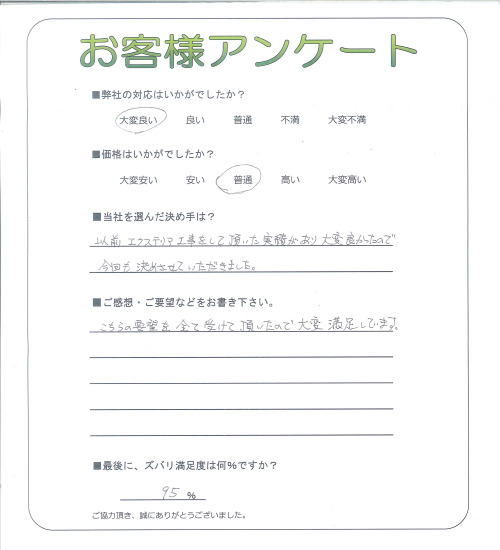 お客様アンケート
■弊社の対応はいかがでしたか？
大変良い 良い 普通 不満 大変不満
■価格はいかがでしたか？
大変安い 安い 普通 高い 大変高い
■当社を選んだ決め手は？
以前 エクステリア工事をして頂いた実績があり大変良かったので
今回も決めさせていただきました。
■ご感想・ご要望などをお書き下さい。
こちらの要望を全て受けて頂いたので大変満足しています。
■最後に、ズバリ満足度は何%ですか？
95 %
ご協力頂き、誠にありがとうございました。